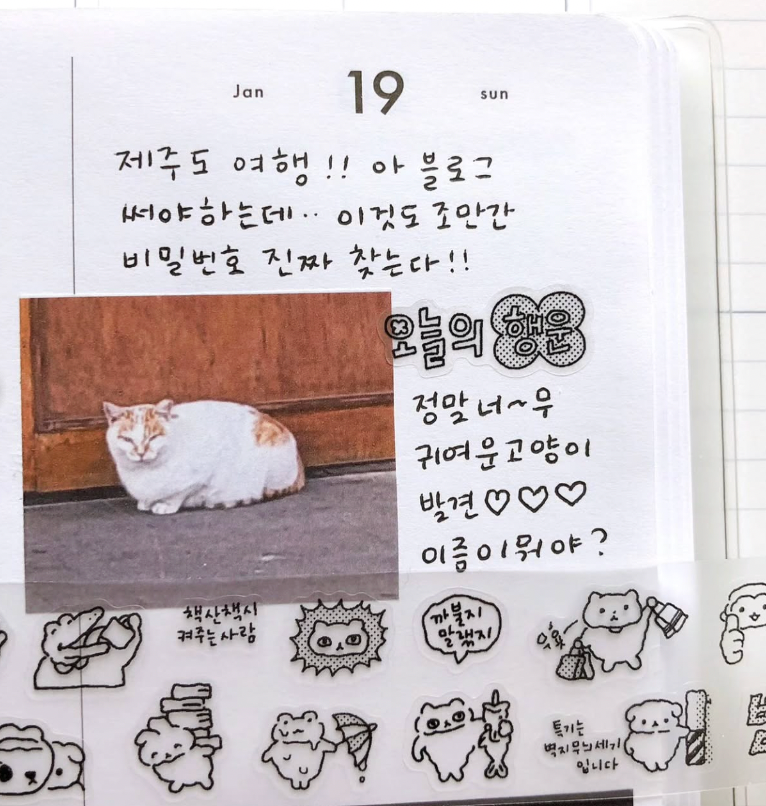 Jan 19 sun
제주도 여행!! 아 블로그
써야하는데.. 이것도 조만간
비밀번호 진짜 찾는다!!
오늘의 행운
정말 너~무
귀여운 고양이
발견♡♡♡
이름이 뭐야?
책산책시
켜주는 사람
까불지
말랬지
특기는
벽지무늬세기
입니다